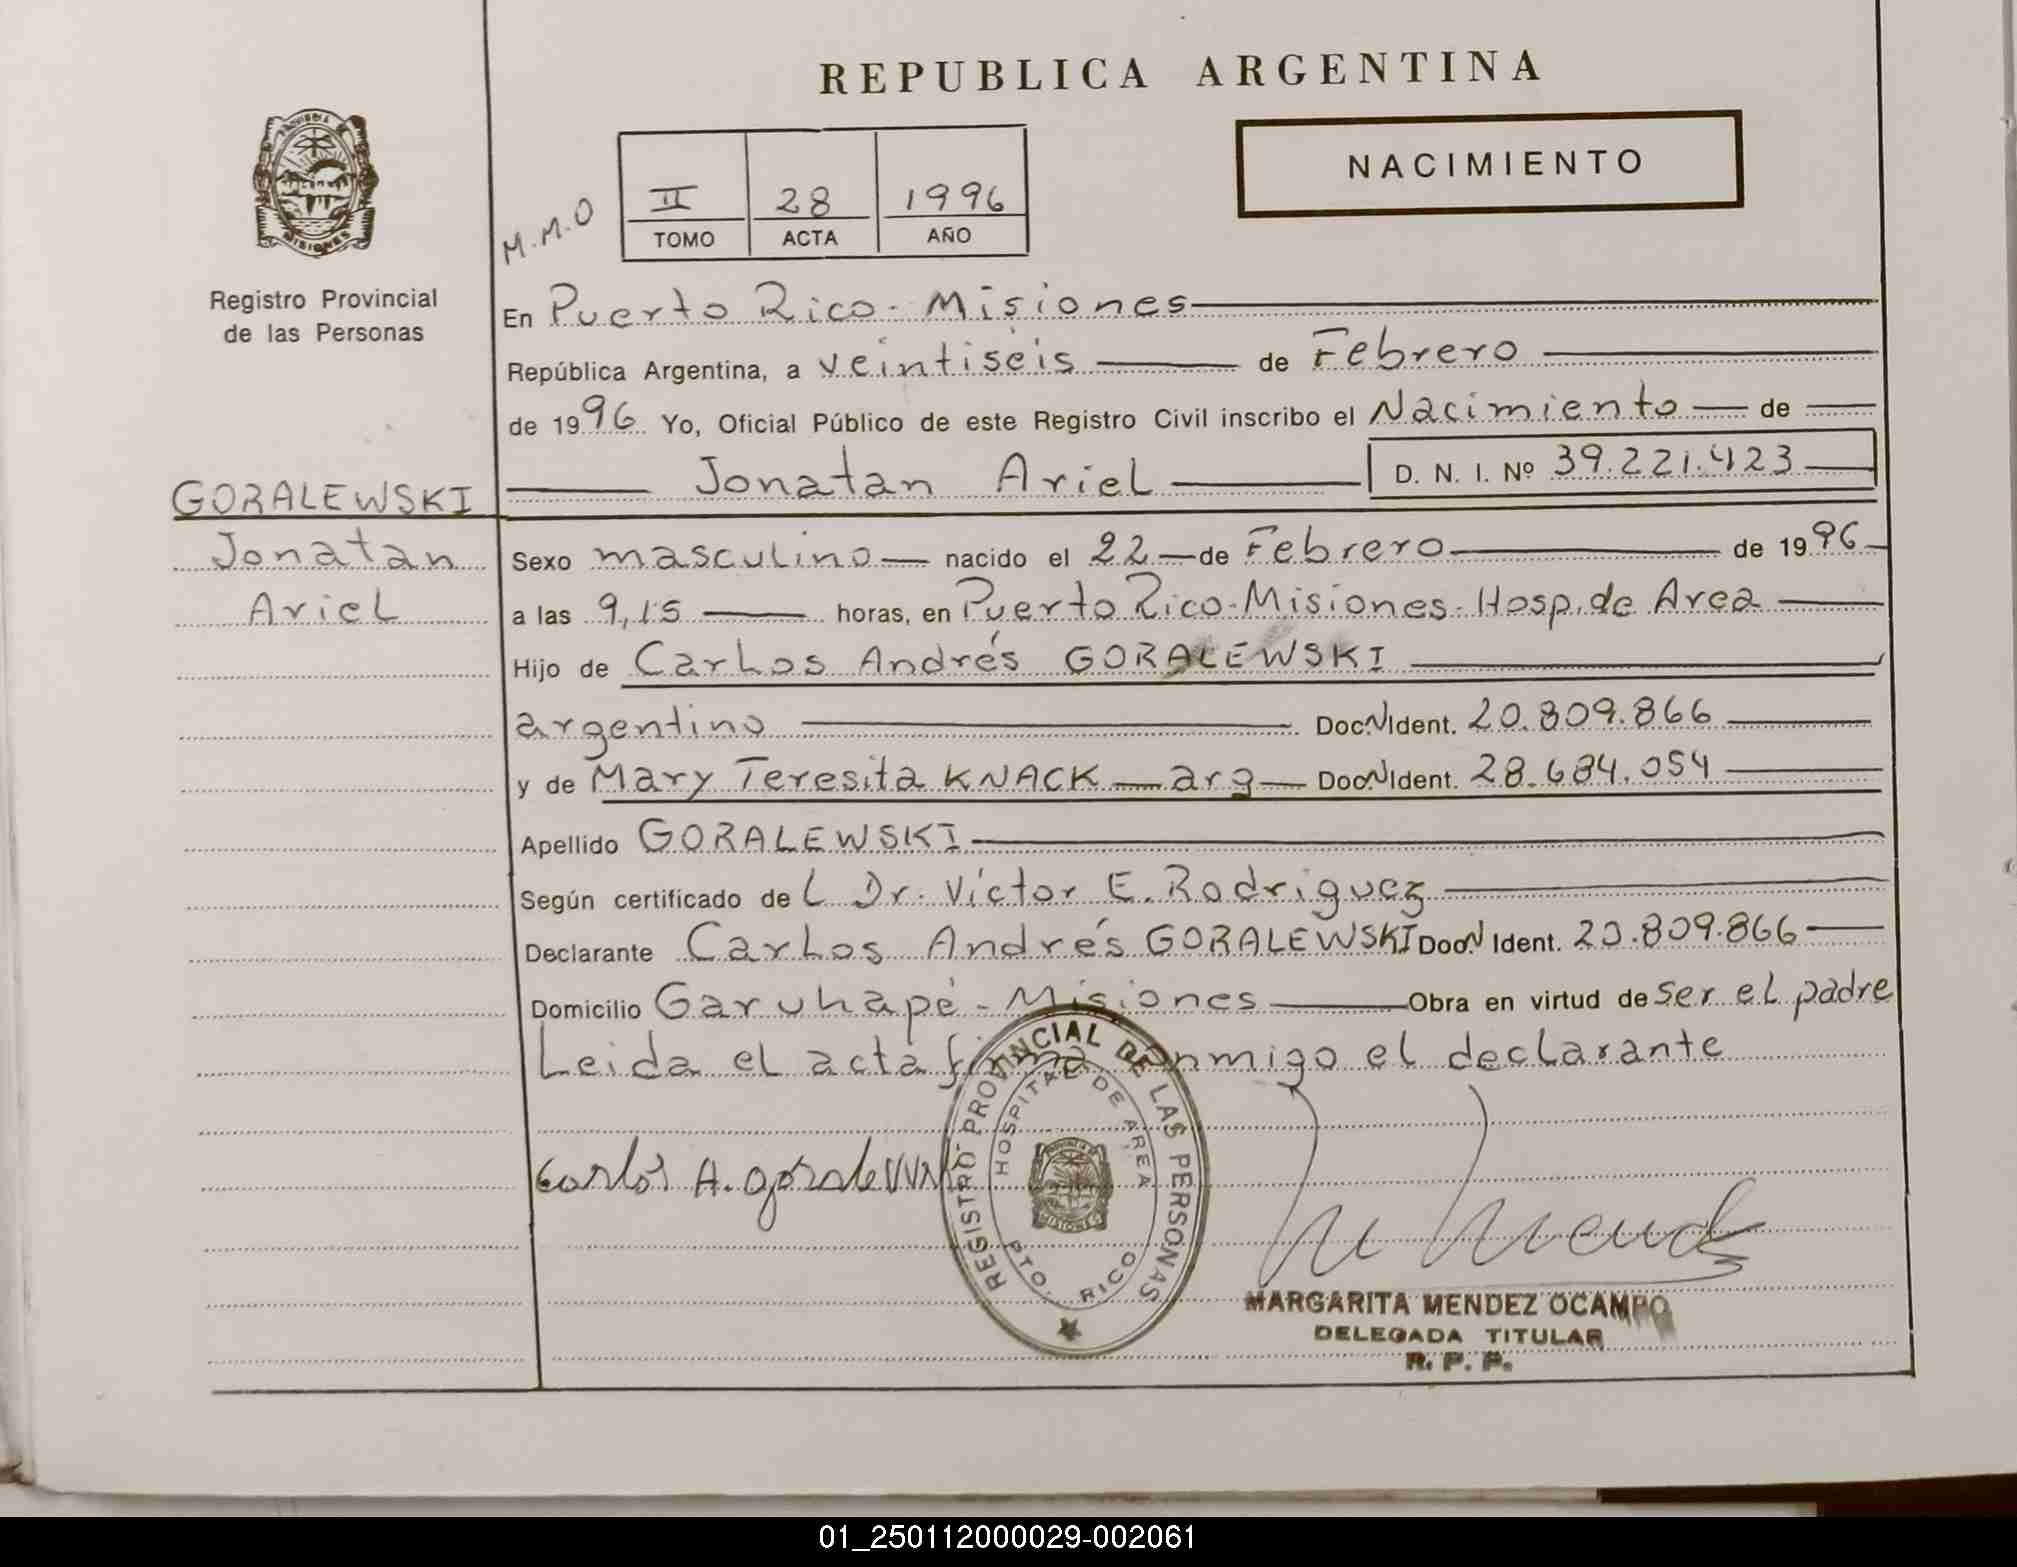 REPUBLICA ARGENTINA
NACIMIENTO
PROVINCIA DE MISIONES
M.M.O
II 28 1996
TOMO ACTA AÑO
Registro Provincial
de las Personas
GORALEWSKI
Jonatan
Ariel
En Puerto Rico - Misiones
República Argentina, a veintiséis de Febrero
de 1996 Yo, Oficial Público de este Registro Civil inscribo el Nacimiento de
Jonatan Ariel D. N. I. Nº 39.221.423
Sexo masculino nacido el 22 de Febrero de 1996
a las 9,15 horas, en Puerto Rico - Misiones - Hosp. de Area
Hijo de Carlos Andrés GORALEWSKI
argentino Doc. N Ident. 20.809.866
y de Mary Teresita KNACK arg Doc. N Ident. 28.684.054
Apellido GORALEWSKI
Según certificado del Dr. Víctor E. Rodriguez
Declarante Carlos Andrés GORALEWSKI Doc. N Ident. 20.809.866
Domicilio Garuhapé - Misiones Obra en virtud de ser el padre
Leida el acta firma conmigo el declarante
Carlos A. Goralewski
REGISTRO PROVINCIAL DE LAS PERSONAS
HOSPITAL DE AREA
PTO. RICO
MARGARITA MENDEZ OCAMPO
DELEGADA TITULAR
R. P. P.
01_250112000029-002061